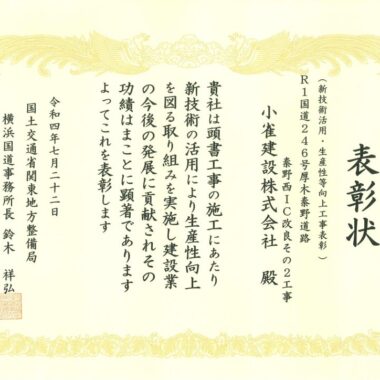 表彰状
（新技術活用・生産性等向上工事表彰）
Ｒ１国道２４６号厚木秦野道路
秦野西ＩＣ改良その２工事
小雀建設株式会社　殿
貴社は頭書工事の施工にあたり
新技術の活用により生産性向上
を図る取り組みを実施し建設業
の今後の発展に貢献されその
功績はまことに顕著であります
よってこれを表彰します
令和四年七月二十二日
国土交通省関東地方整備局
横浜国道事務所長　鈴木　祥弘